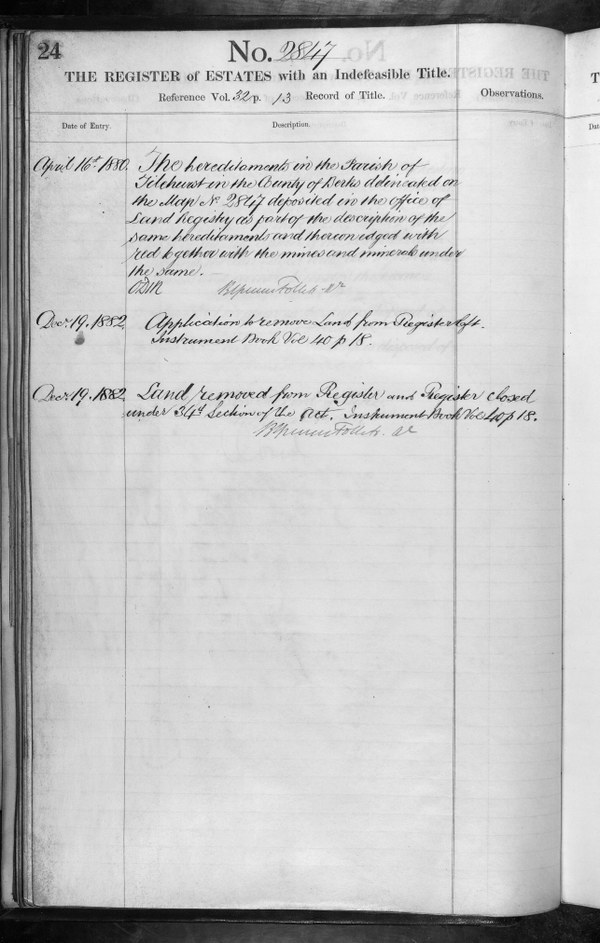 24
No. 2847
THE REGISTER of ESTATES with an Indefeasible Title.
Reference Vol. 32 p. 13 Record of Title.
Observations.
Date of Entry.
Description.
April 16th 1880.
The hereditaments in the Parish of
Tilehurst in the County of Berks delineated on
the Map No. 2847 deposited in the office of
Land Registry as part of the description of the
same hereditaments and thereon edged with
red together with the mines and minerals under
the same.
Brent Follett
Decr. 19. 1882
Application to remove Land from Register
Instrument Book Vol 40 p 18.
Decr. 19. 1882
Land removed from Register and Register closed
under 34th Section of the Act. Instrument Book Vol 40 p 18.
Brent Follett